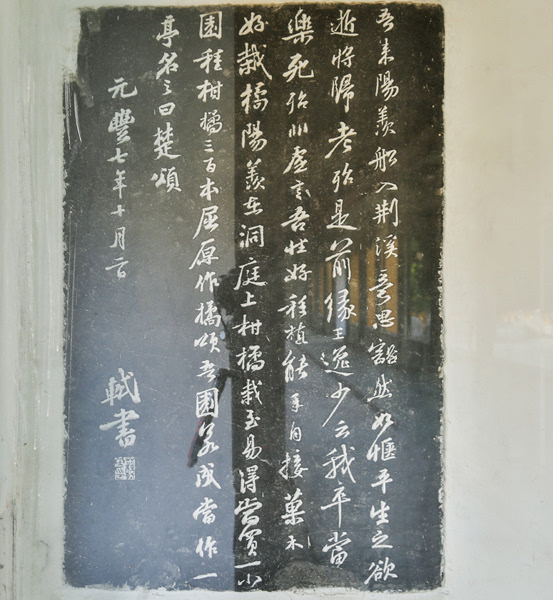 吾来陽羨船入荆溪意思豁然如惬平生之欲
逝将歸老殆是前縁王逸少云我卒當
樂死殆非虚言吾性好種植能手自接菓木
好栽橘陽羨在洞庭上柑橘栽至易得當買一小
園種柑橘三百本屈原作橘頌吾園若成當作一
亭名之曰楚頌
元豐七年十月二日
軾書